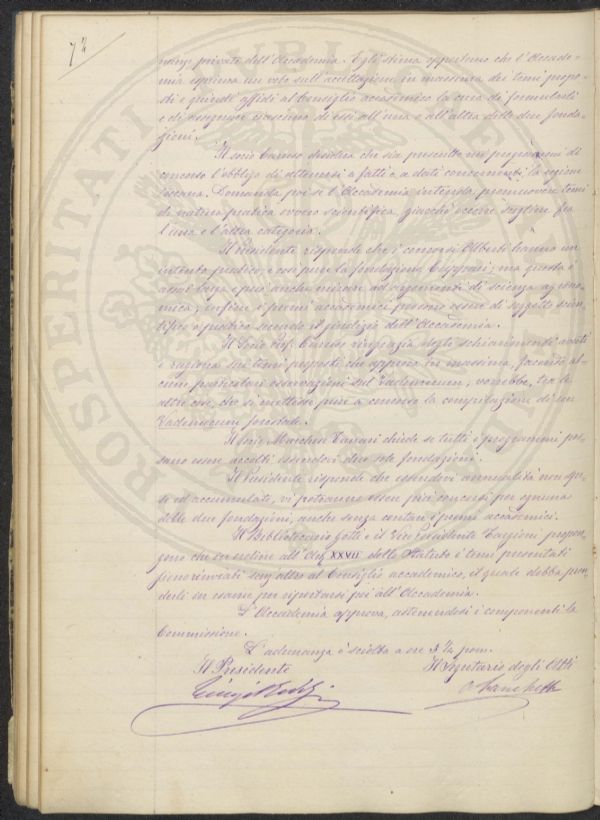 72
nanza privata dell'Accademia. Egli stima opportuno che l'Accade-
mia esprima un voto sull'accettazione in massima dei temi propo-
sti e quindi affidi al Consiglio accademico la cura di formularli
e di assegnare ciascuno di essi all'una o all'altra delle due fonda-
zioni.
Il socio Caruso desidera che sia prescritto nei programmi di
concorso l'obbligo di attenersi a fatti e a dati concernenti la regione
toscana. Domanda poi se l'Accademia intenda promuovere temi
di natura pratica ovvero scientifica, giacchè occorre scegliere fra
l'una e l'altra categoria.
Il Presidente risponde che i concorsi Alberti hanno un
intento pratico, e così pure la fondazione Capponi; ma questa è
assai larga e può anche mirare ad argomenti di scienza agrono-
mica; infine i premi accademici possono essere di soggetto scien-
tifico o pratico secondo il giudizio dell'Accademia.
Il Socio Prof. Caruso ringrazia degli schiarimenti avuti
e ragiona sui temi proposti che approva in massima, facendo al-
cune particolari osservazioni sul Vademecum; vorrebbe, tra le
altre cose, che si mettesse pure a concorso la compilazione di un
Vademecum forestale.
Il socio Marchese chiede se tutti i programmi pos-
sano essere accolti essendovi due sole fondazioni.
Il Presidente risponde che essendovi annualità non spe-
se ed accumulate, vi potranno essere più concorsi per ognuna
delle due fondazioni, anche senza contare i premi accademici.
Il Bibliotecario Gotti e il Vice Presidente Targioni propon-
gono che in ordine all'Art. XXVII dello Statuto i temi presentati
sieno rinviati senz'altro al Consiglio accademico, il quale debba pren-
derli in esame per riportarsi poi all'Accademia.
L'Accademia approva, astenendosi i componenti la
Commissione.
L'adunanza è sciolta a ore 3 1/4 pom.
Il Presidente
Il Segretario degli Atti
Luigi Ridolfi
PROSPERITATI PUBLICAE AUGENDAE